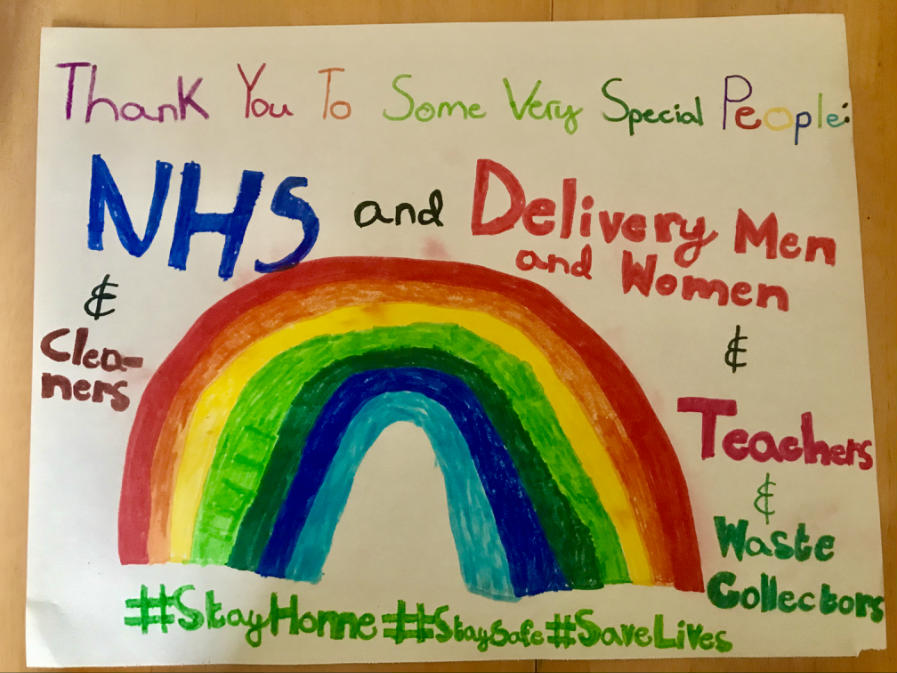 Thank You To Some Very Special People:
NHS and Delivery Men
and Women
&
Clea-
ners
&
Teachers
&
Waste
Collectors
#StayHome #StaySafe #SaveLives